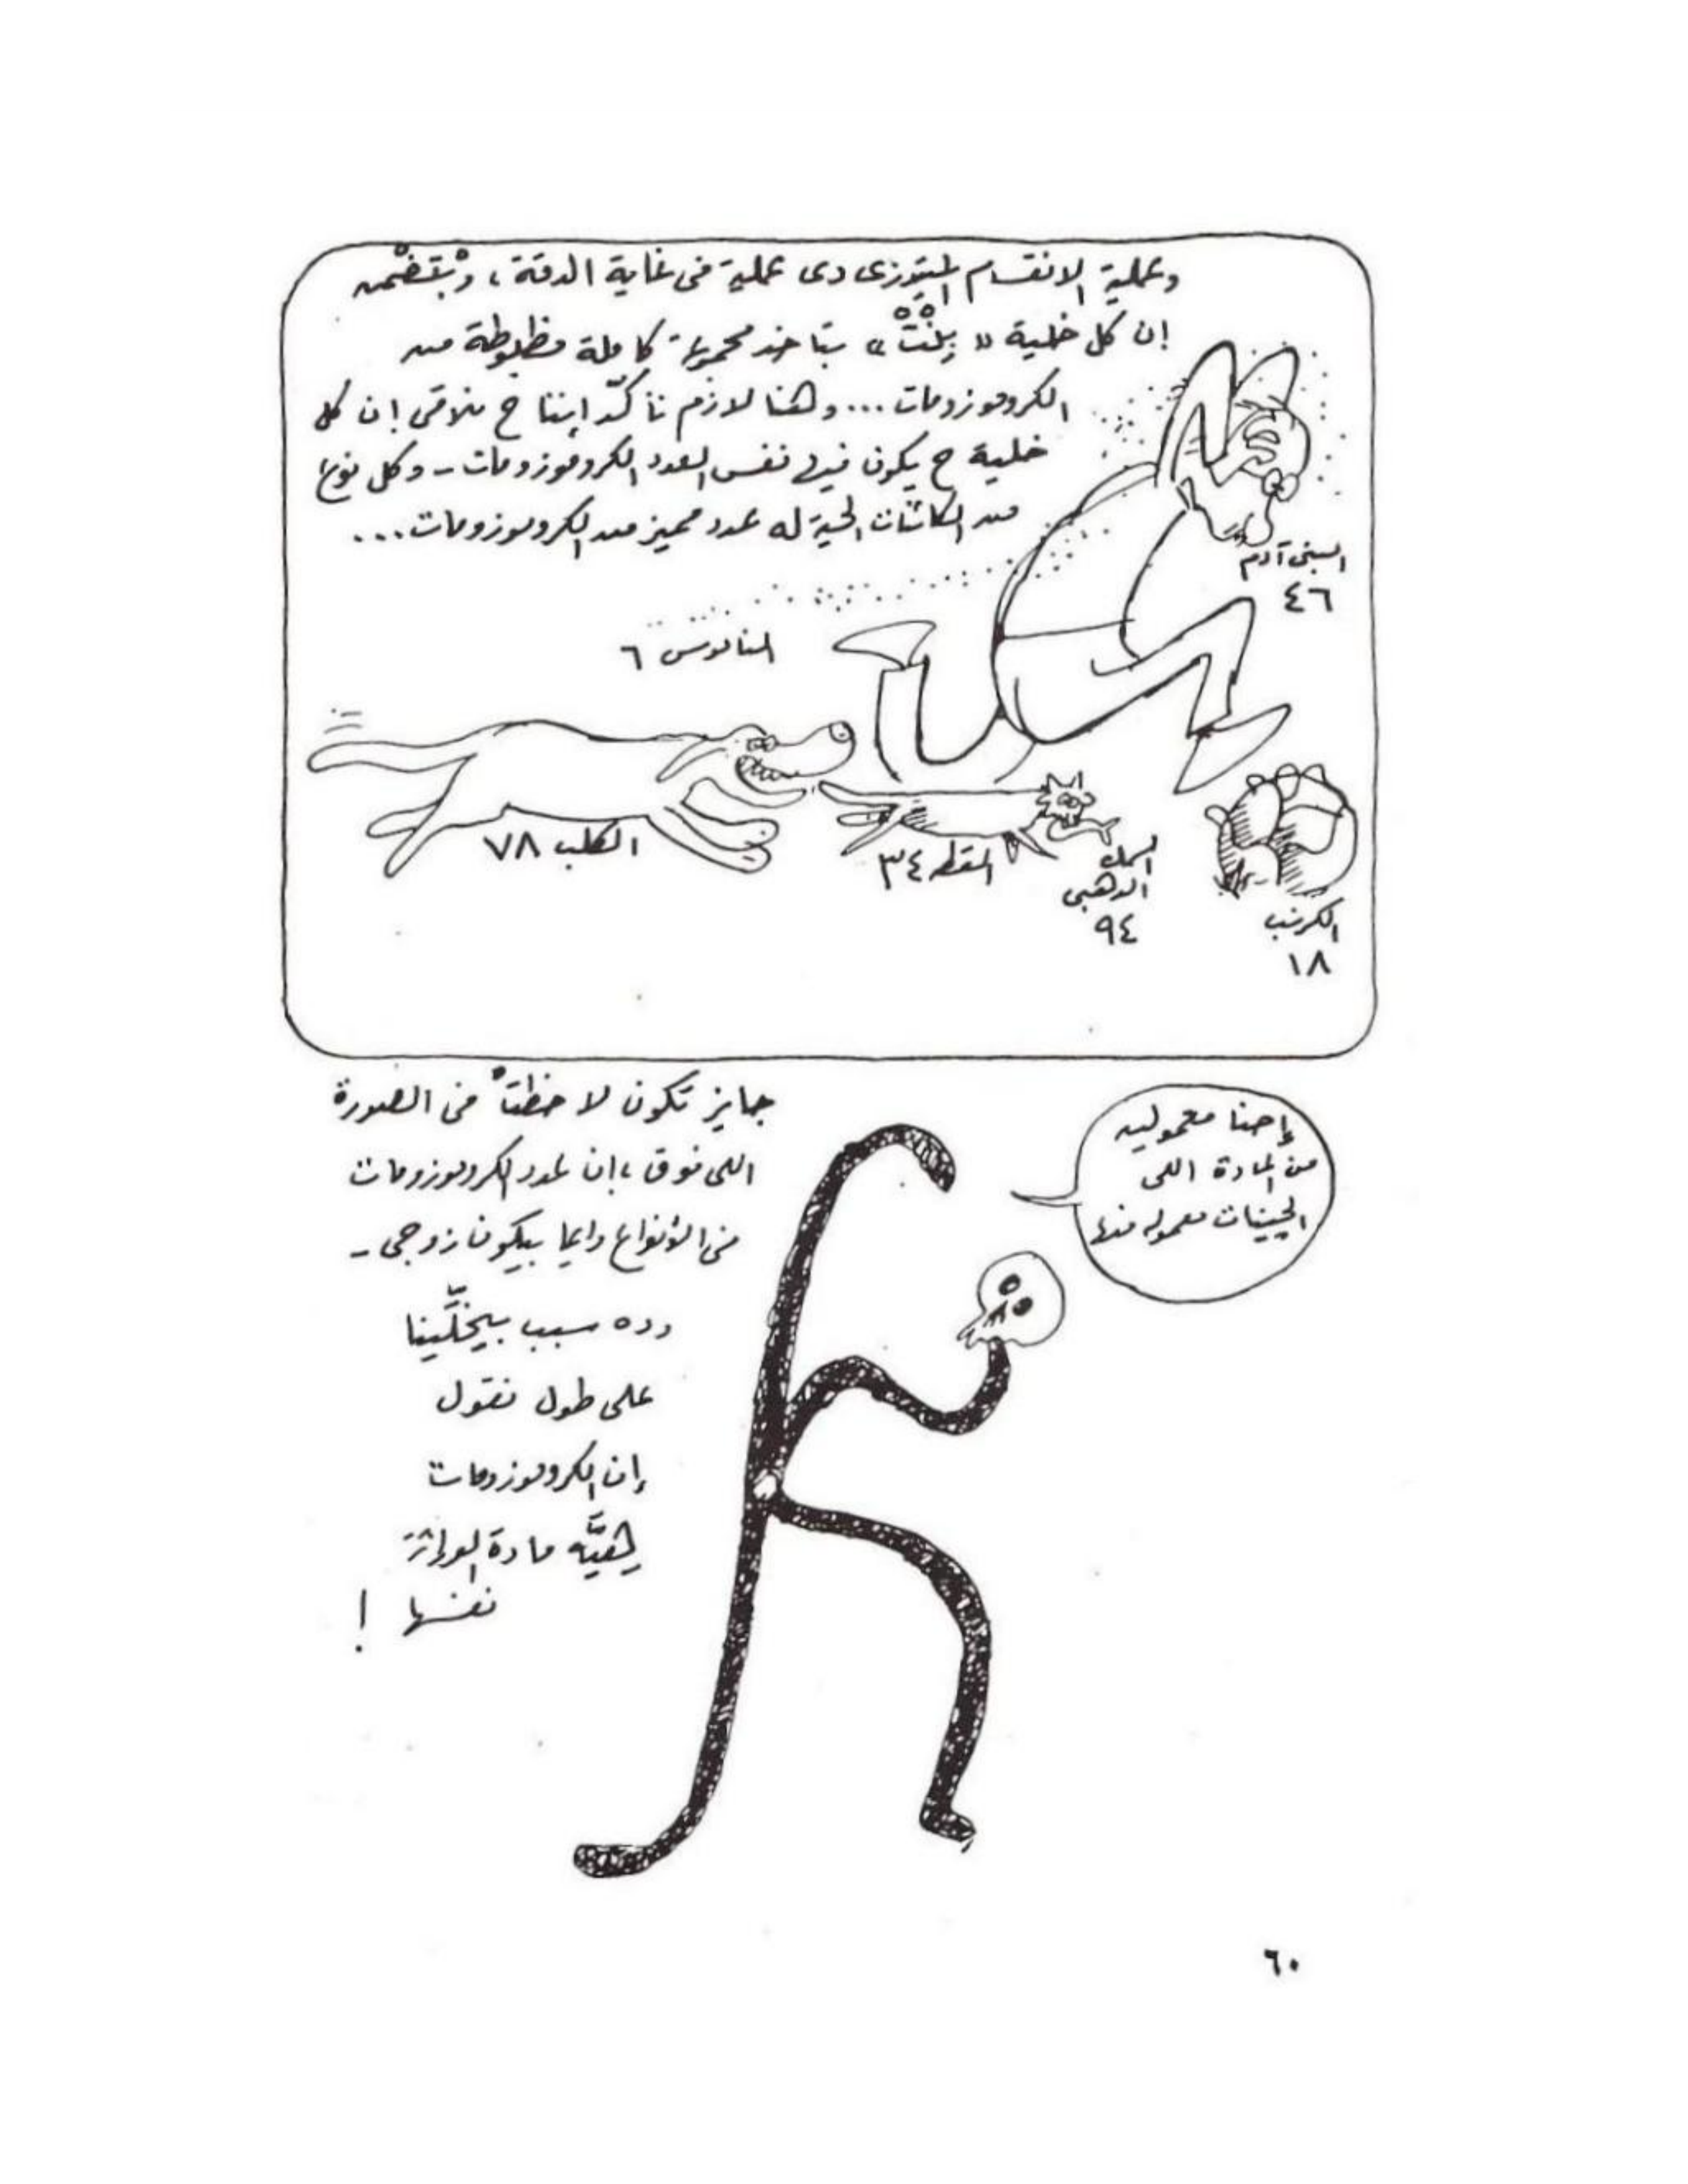 وعملية الانقسام الميتوزى دى عملية فى غاية الدقة، وبْتِضْمن
إن كل خلية « بِنْتْ » بتاخد مجموعة كاملة مظبوطة من
الكروموزومات... وهنا لازم نأكّد إننا ح نلاقى إن كل
خلية ح يكون فيها نفس العدد الكروموزومات - وكل نوع
من الكائنات الحية له عدد مميز من الكروموزومات...
البنى آدم
٤٦
الناموس ٦
الكلب ٧٨
القطه ٣٤
السمك
الدهبى
٩٤
الكرنب
١٨
جايز تكون لاحظتْ فى الصورة
اللى فوق، إن عدد الكروموزومات
فى الأنواع دايما بيكون زوجى -
وده سبب بيخلّينا
على طول نقول
إن الكروموزومات
هِيَّه مادة الوراثة
نفسها !
إحنا معمولين
من المادة اللى
الچينات معموله منها
٦٠